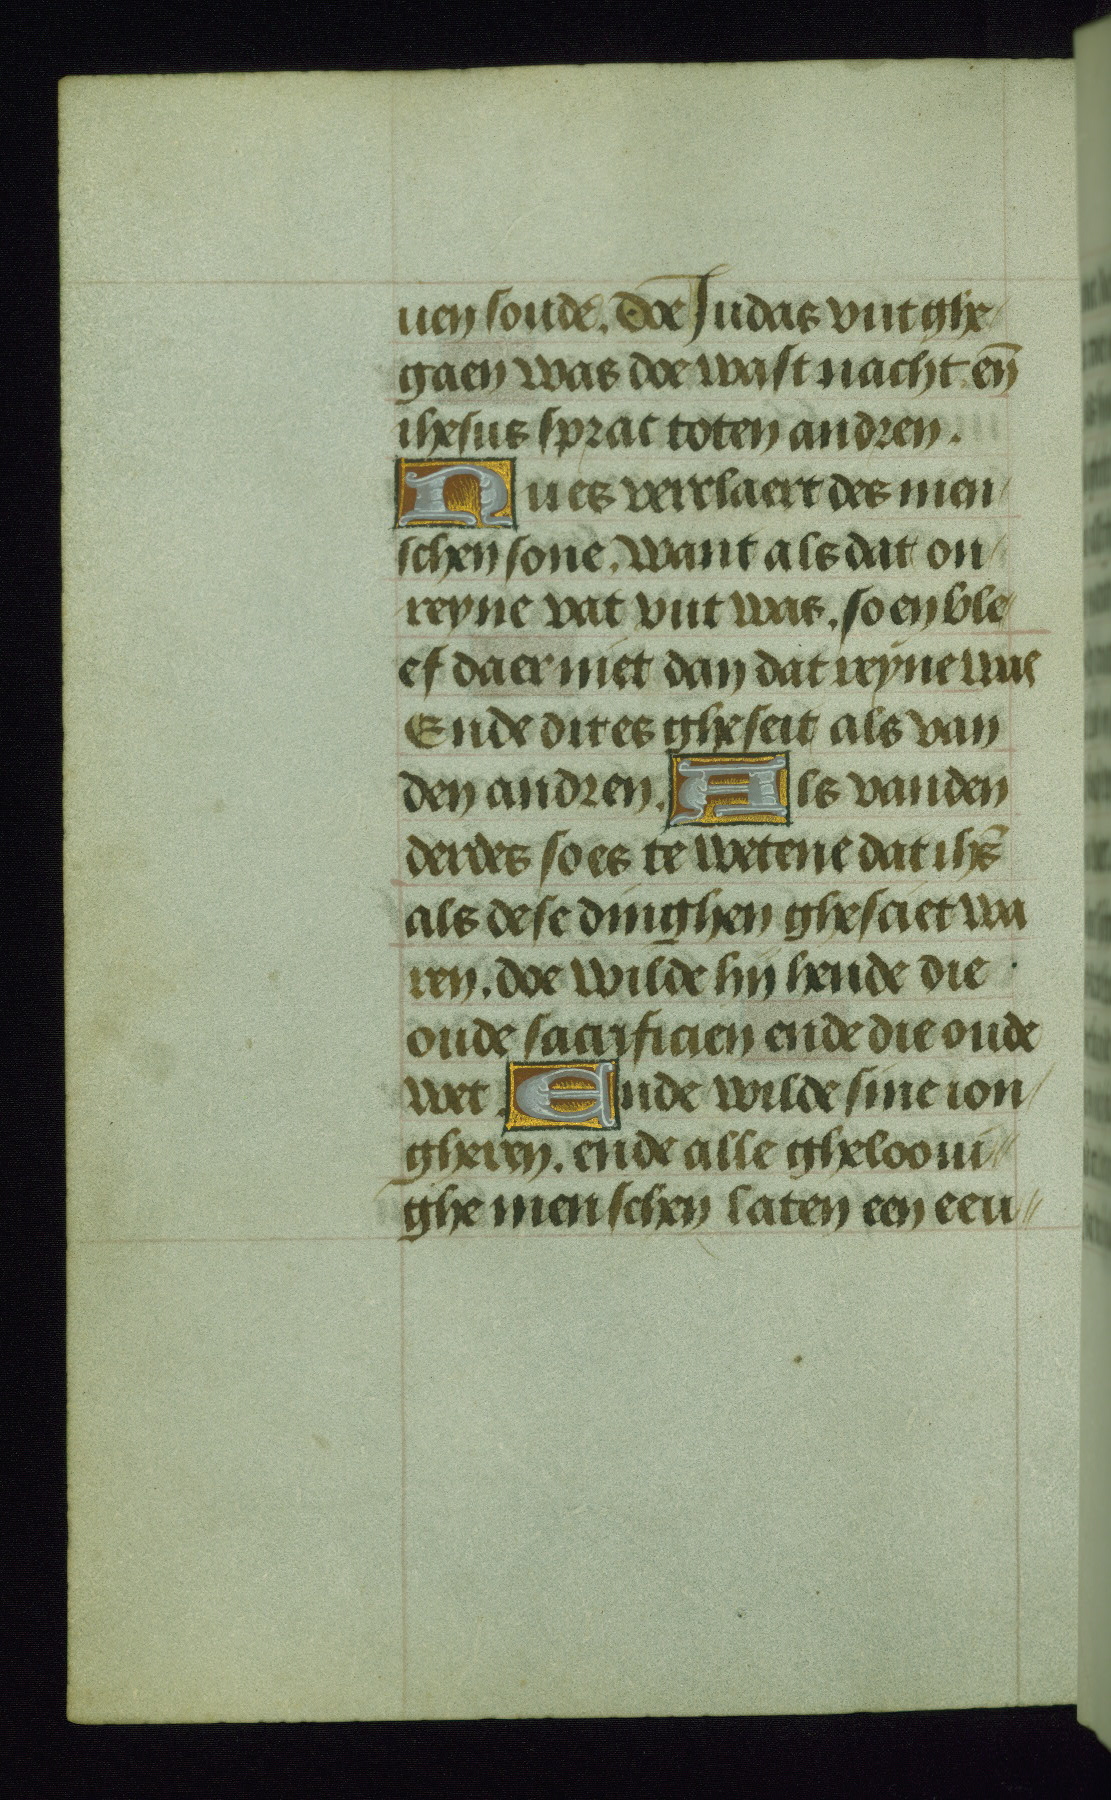 uen soude. doe Judas vut ghe
gaen was doe wast nacht en̄
ihesus sprac toten andren.
Nu es verclaert des men
schen sone. want als dat on
reyne vat vut was. so en ble
ef daer niet dan dat reyne was
Ende dit es gheseit als van
den andren. Als vanden
derdes so es te wetene dat ihs̄
als dese dinghen ghesciet wa
ren. doe wilde hij hende die
oude sacrificien ende die oude
wet. Ende wilde sine ion
gheren. ende alle ghelooui
ghe menschen laten een eeu